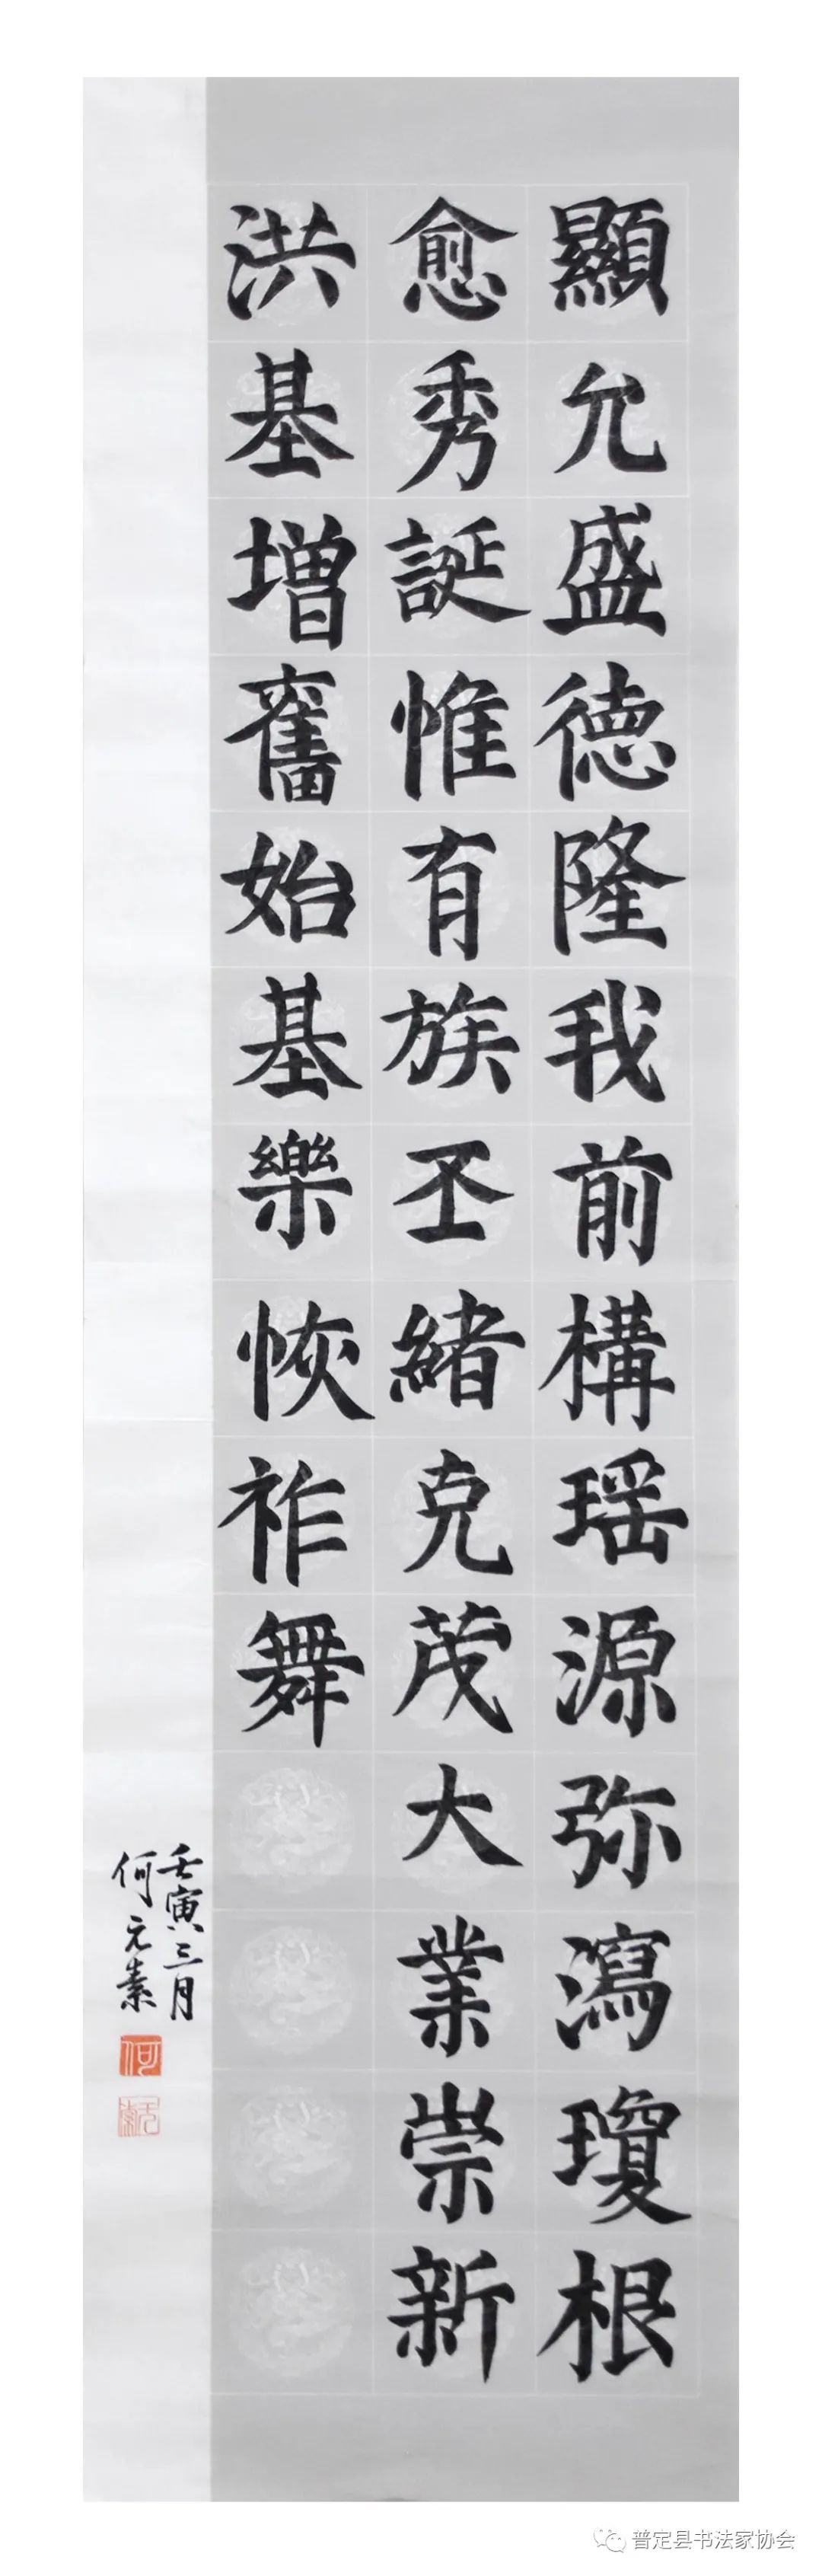 顯允盛德隆我前構瑶源弥瀉瓊根
愈秀誕惟有族丕緒克茂大業崇新
洪基增舊始基樂恢祚舞
壬寅三月
何元素
何
元素
普定县书法家协会